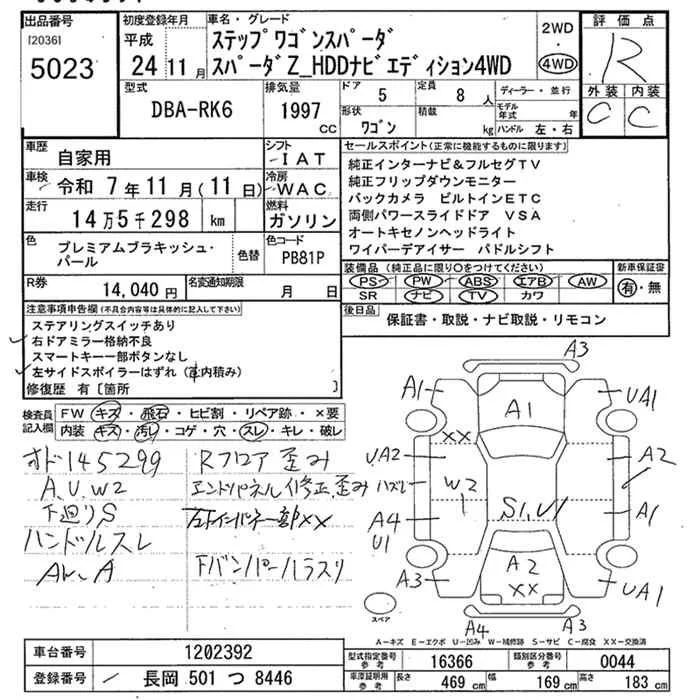 出品番号
[20361
5023
初度登録年月
平成
24 11 月
車名・グレード
ステップワゴンスパーダ
スパーダZ_HDDナビエディション4WD
2WD
・
4WD
評価点
R
外装 内装
C C
型式
DBA-RK6
排気量
1997
CC
ドア
5
定員
8 人
形状
ワゴン
積載
kg
ディーラー・並行
モデル年式 年
ハンドル 左・右
車歴
自家用
シフト
IAT
車検
令和 7年11月(11日)
冷房
WAC
走行
14万5千298 km
燃料
ガソリン
色
プレミアムブラキッシュ・
パール
色替
色コード
PB81P
R券
14,040 円
名変通知期限
月 日
セールスポイント(正常に機能するものに限り)
純正インターナビ&フルセグTV
純正フリップダウンモニター
バックカメラ ビルトインETC
両側パワースライドドア VSA
オートキセノンヘッドライト
ワイパーデアイサー パドルシフト
装備品(純正品に限り○をつけてください)
PS PW ABS エアB AW
SR ナビ TV カワ
新車保証書
有・無
後日品
保証書・取説・ナビ取説・リモコン
注意事項申告欄(不具合内容等は具体的に記入して下さい)
ステアリングスイッチあり
右ドアミラー格納不良
スマートキー一部ボタンなし
左サイドスポイラーはずれ(車内積み)
修復歴 有〔箇所 〕
検査員
記入欄
FW キズ・飛石・ヒビ割・リペア跡・×要
内装 キズ・汚レ・コゲ・穴・スレ・キレ・破レ
オド145299
A,U,W2
下廻りS
ハンドルスレ
AW,A
Rフロア歪み
エンドパネル修正、歪み
左インパネ一部××
Fバンパーハラスリ
A3
A1
A1
UA1
XX
UA2
ハズレ
W2
A2
A2
A4
U1
S1,U1
A1
A3
A2
XX
UA1
A4
A3
スペア
A-キズ E-エクボ U-凹み W-補修跡 S-サビ C-腐食 XX-交換済
車台番号
1202392
登録番号
長岡 501 つ 8446
型式指定番号
参考
16366
類別区分番号
参考
0044
車庫証明用
参考
長さ
469 cm
幅
169 cm
高さ
183 cm